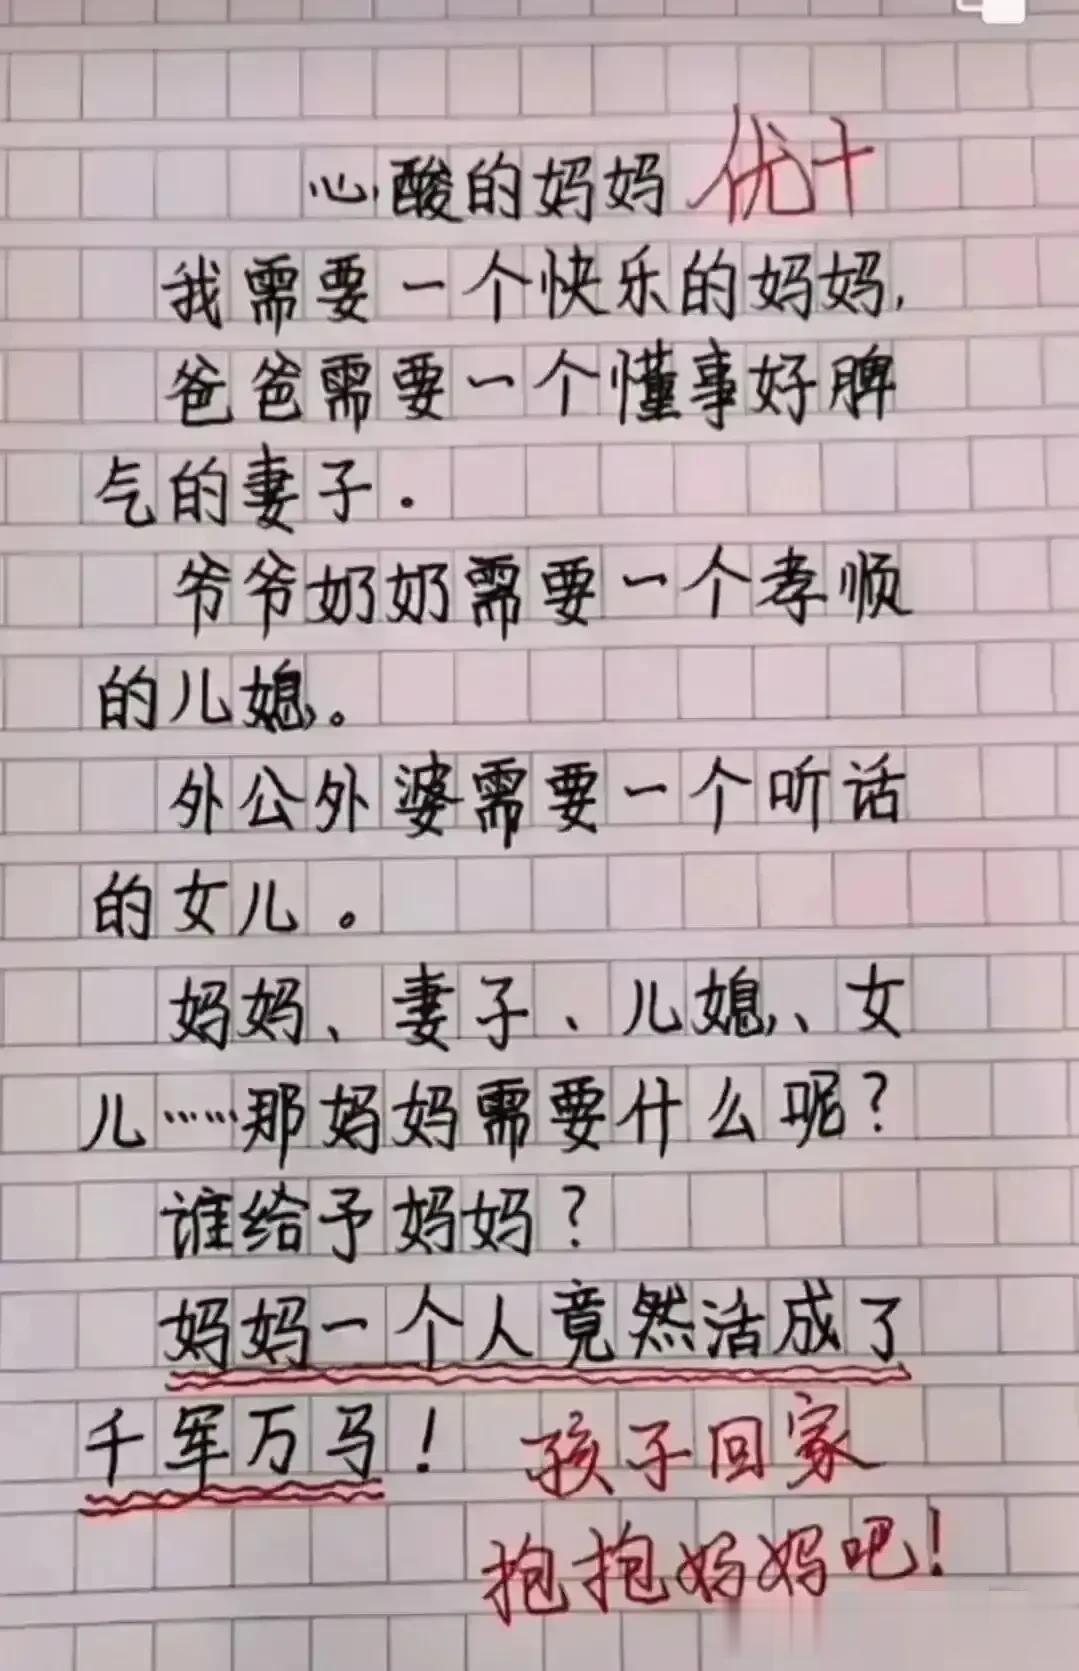 心酸的妈妈 优+
我需要一个快乐的妈妈,
爸爸需要一个懂事好脾
气的妻子.
爷爷奶奶需要一个孝顺
的儿媳。
外公外婆需要一个听话
的女儿。
妈妈、妻子、儿媳、女
儿……那妈妈需要什么呢?
谁给予妈妈?
妈妈一个人竟然活成了
千军万马! 孩子回家
抱抱妈妈吧!